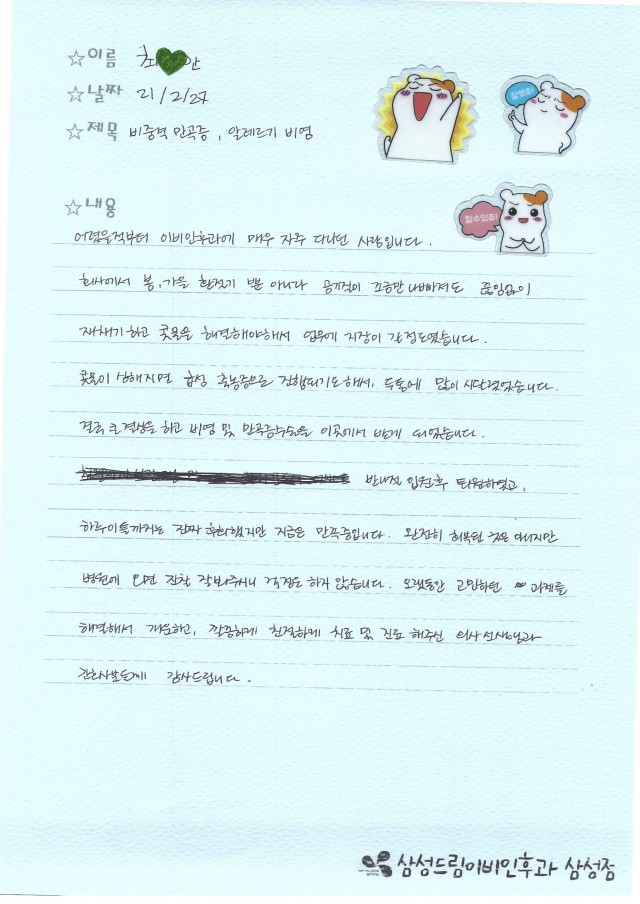 ☆이름 최 안
☆날짜 21/2/27
☆제목 비중격 만곡증, 알레르기 비염
잘했쥬!
할수있쥬!
☆내용
어렸을적부터 이비인후과에 매우 자주 다니던 사람입니다.
회사에서 봄, 가을 환절기 뿐 아니라 공기질이 조금만 나빠져도 끊임없이
재채기하고 콧물을 해결해야해서 업무에 지장이 갈정도였습니다.
콧물이 심해지면 급성 축농증으로 진행되기도해서, 두통에 많이 시달렸었습니다.
결국 큰결심을 하고 비염 및 만곡증수술을 이곳에서 받게 되었습니다.
반나절 입원후 퇴원하였고,
하루이틀까지는 진짜 후회했지만 지금은 만족중입니다. 완전히 회복된 것은 아니지만
병원에 오면 진찰 잘봐주시니 걱정도 하지 않습니다. 오랫동안 고민하던 과제를
해결해서 개운하고, 꼼꼼하게 친절하게 치료 및 진료 해주신 의사선생님과
간호사분들께 감사드립니다.
삼성드림이비인후과 삼성점